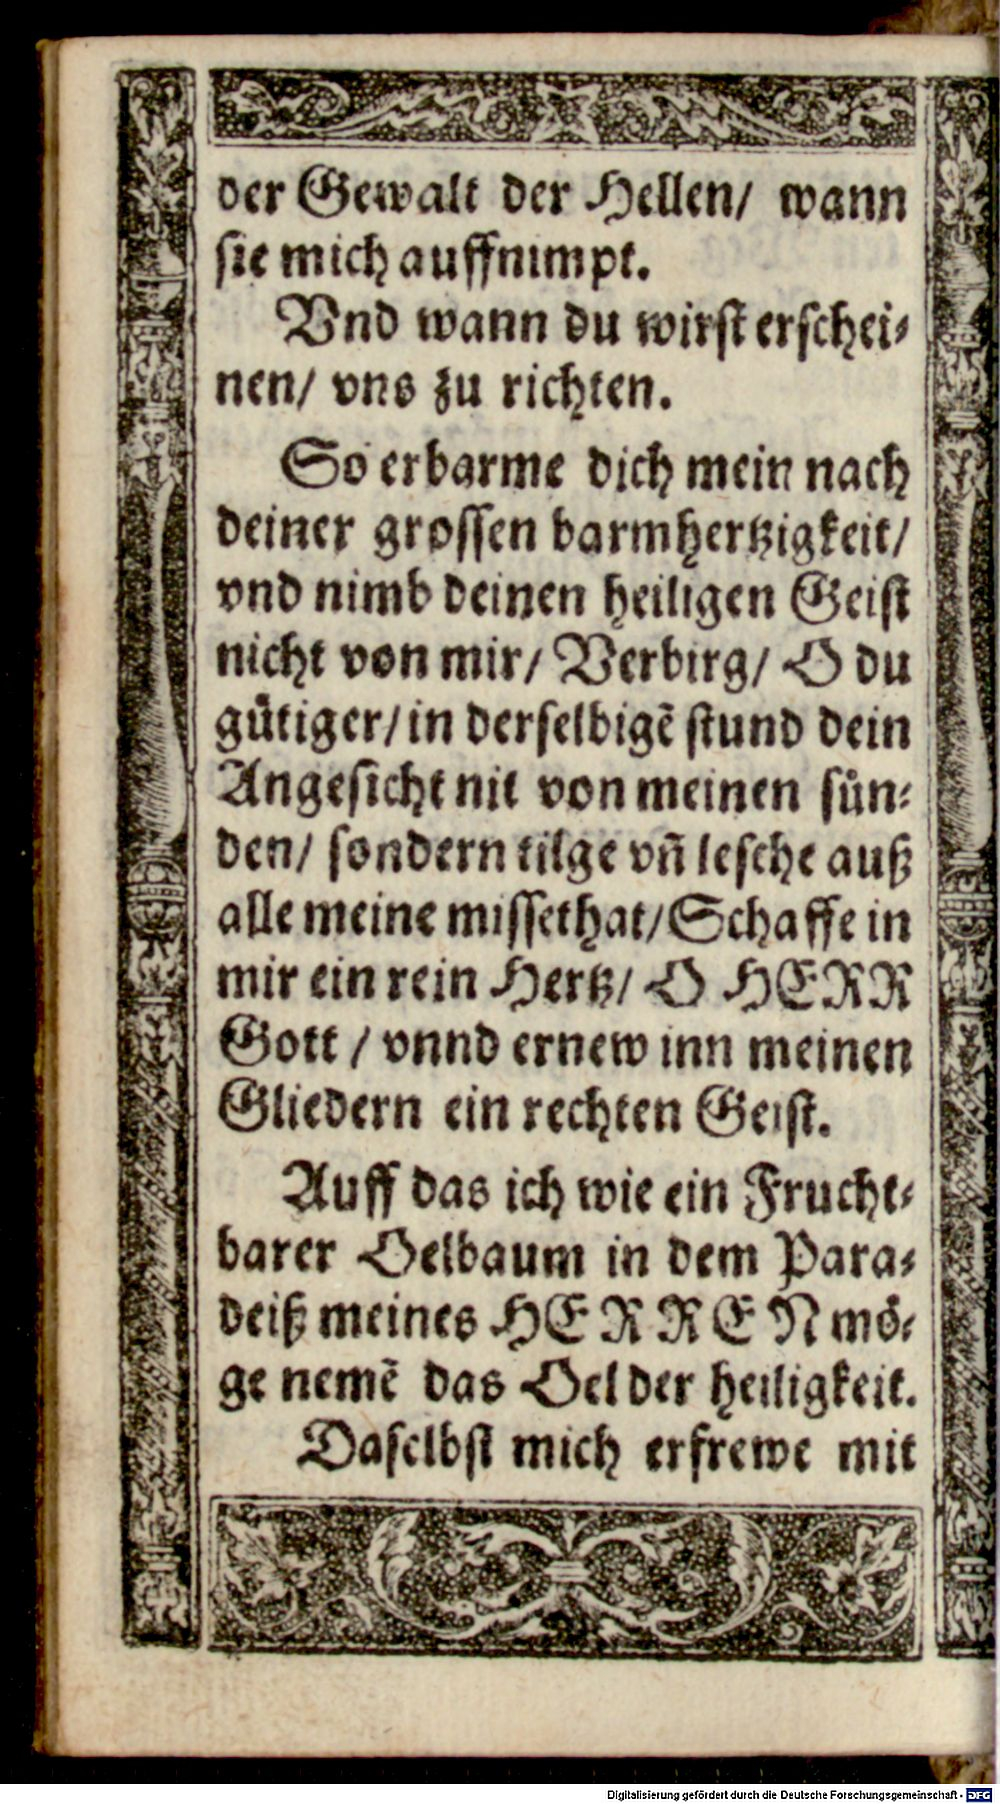 der Gewalt der Hellen/ wann
sie mich auffnimpt.
Vnd wann du wirst erschei-
nen/ vns zu richten.
So erbarme dich mein nach
deiner grossen barmhertzigkeit/
vnd nimb deinen heiligen Geist
nicht von mir/ Verbirg/ O du
guͤtiger/ in derselbigẽ stund dein
Angesicht nit von meinen suͤn-
den/ sondern tilge vñ lesche auß
alle meine missethat/ Schaffe in
mir ein rein Hertz/ O HERR
Gott / vnnd ernew inn meinen
Gliedern ein rechten Geist.
Auff das ich wie ein Frucht-
barer Oelbaum in dem Para-
deiß meines HERREN moͤ-
ge nemẽ das Oel der heiligkeit.
Daselbst mich erfrewe mit
Digitalisierung gefördert durch die Deutsche Forschungsgemeinschaft - DFG